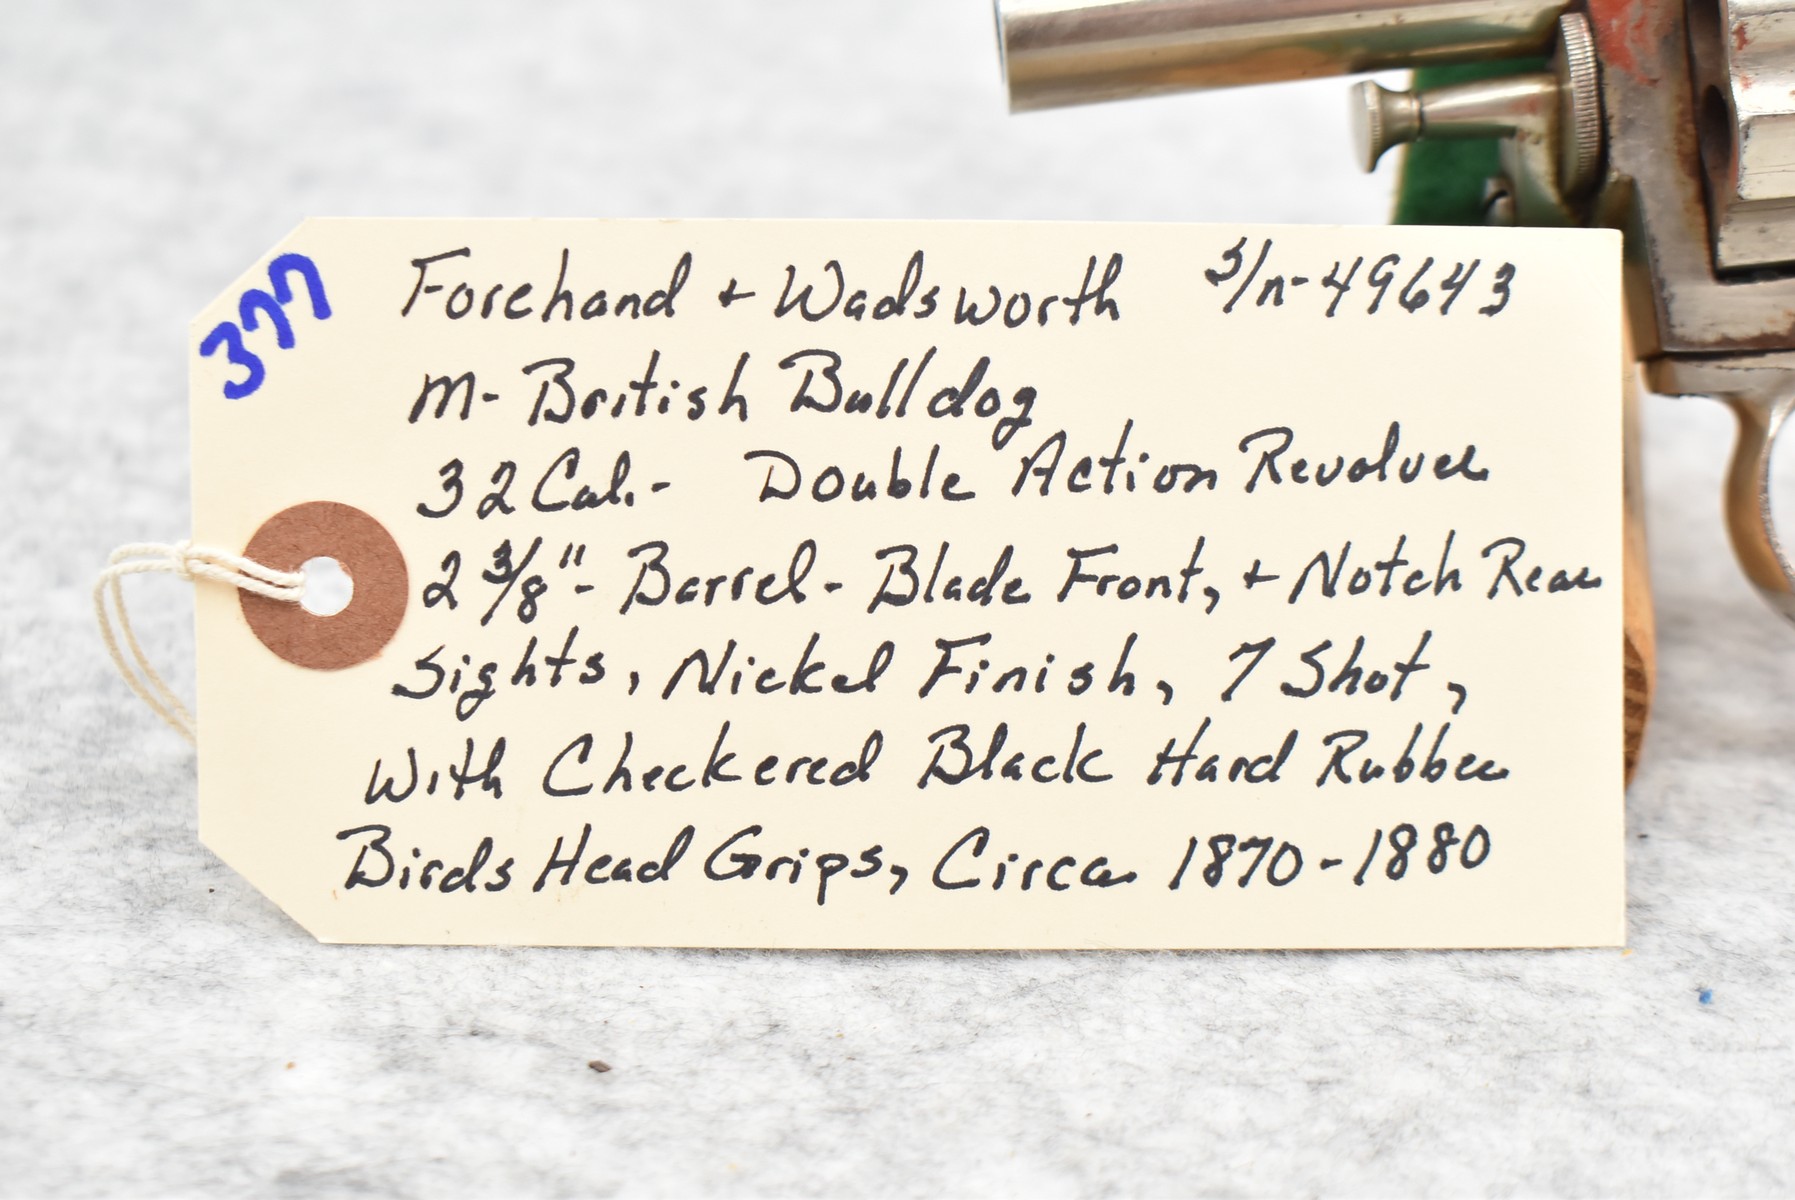 377
Forehand + Wadsworth S/n-49643
M- British Bulldog
32 Cal.- Double Action Revolver
2 3/8"- Barrel- Blade Front, + Notch Rear
Sights, Nickel Finish, 7 Shot,
With Checkered Black Hard Rubber
Birds Head Grips, Circa 1870-1880